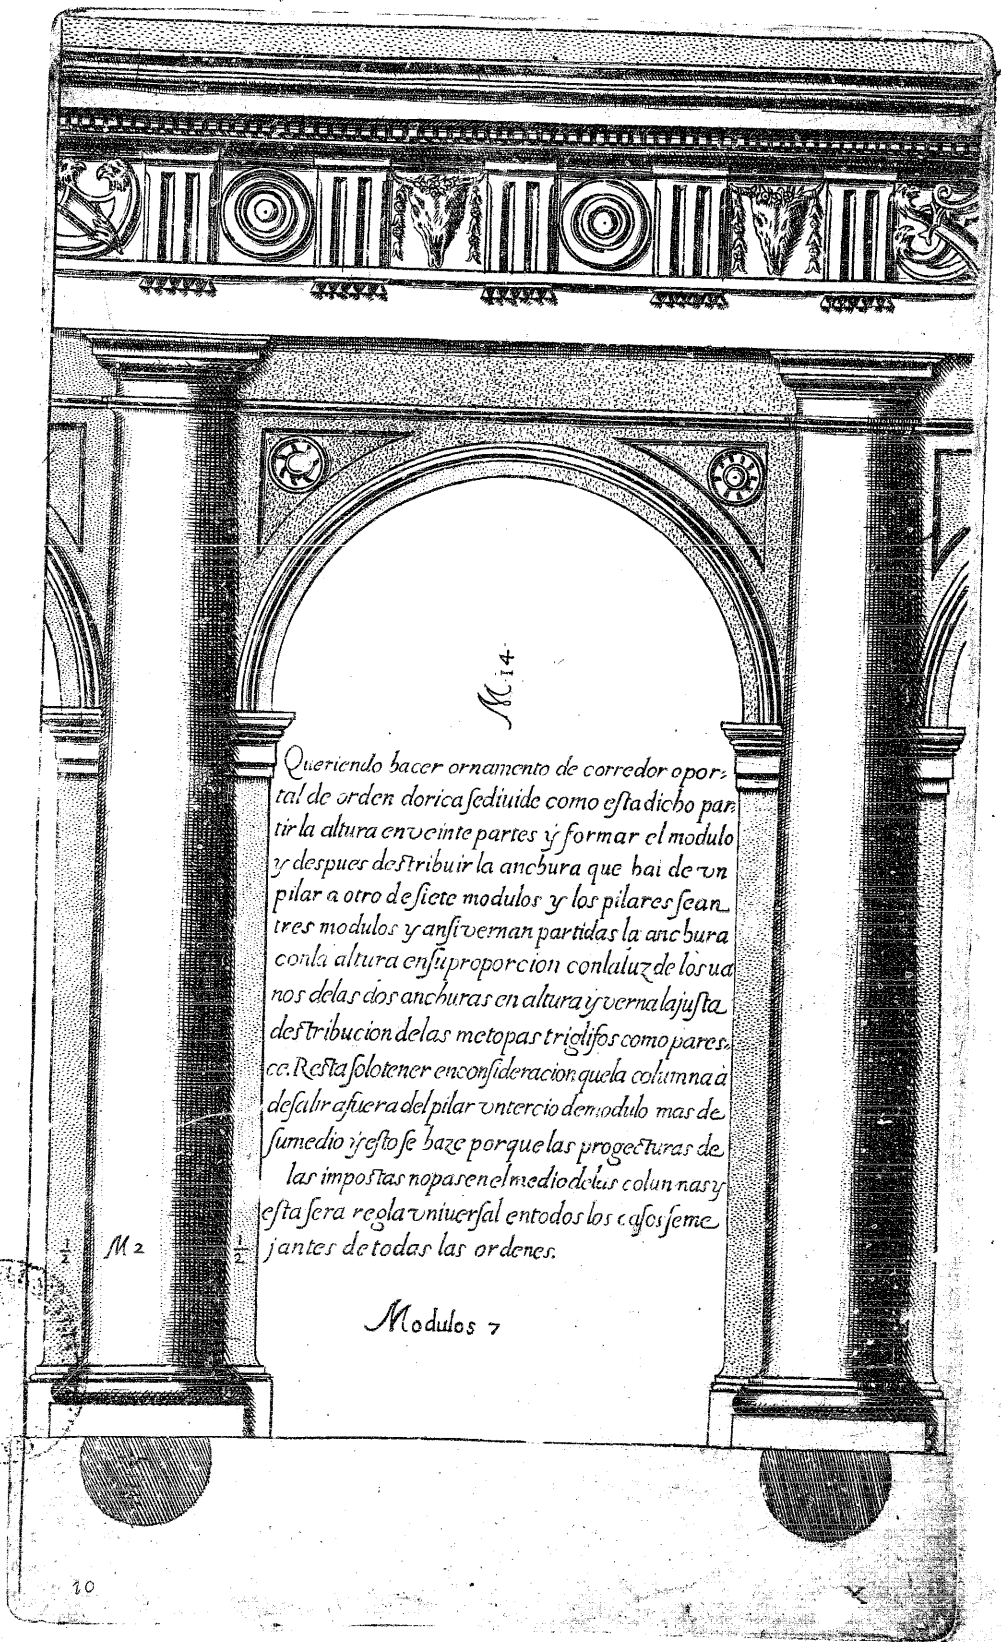 M. 14
Queriendo hacer ornamento de corredor o por-
tal de orden dorica se diuide como esta dicho par
tir la altura en veinte partes ẏ formar el modulo
y despues destribuir la anchura que hai de vn
pilar a otro de siete modulos y los pilares sean
tres modulos y ansi vernan partidas la anchura
con la altura en su proporcion con la luz de los ua
nos de las dos anchuras en altura ẏ verna la justa
destribucion de las metopas triglifos como pares-
ce. Resta solo tener en consideracion que la columna à
de salir a fuera del pilar vn tercio de modulo mas de
su medio ẏ esto se haze por que las progecturas de
las impostas no pasen el medio de las colunnas y
esta sera regla vniuersal en todos los casos seme
jantes de todas las ordenes.
1/2 M 2 1/2
Modulos 7
10
X